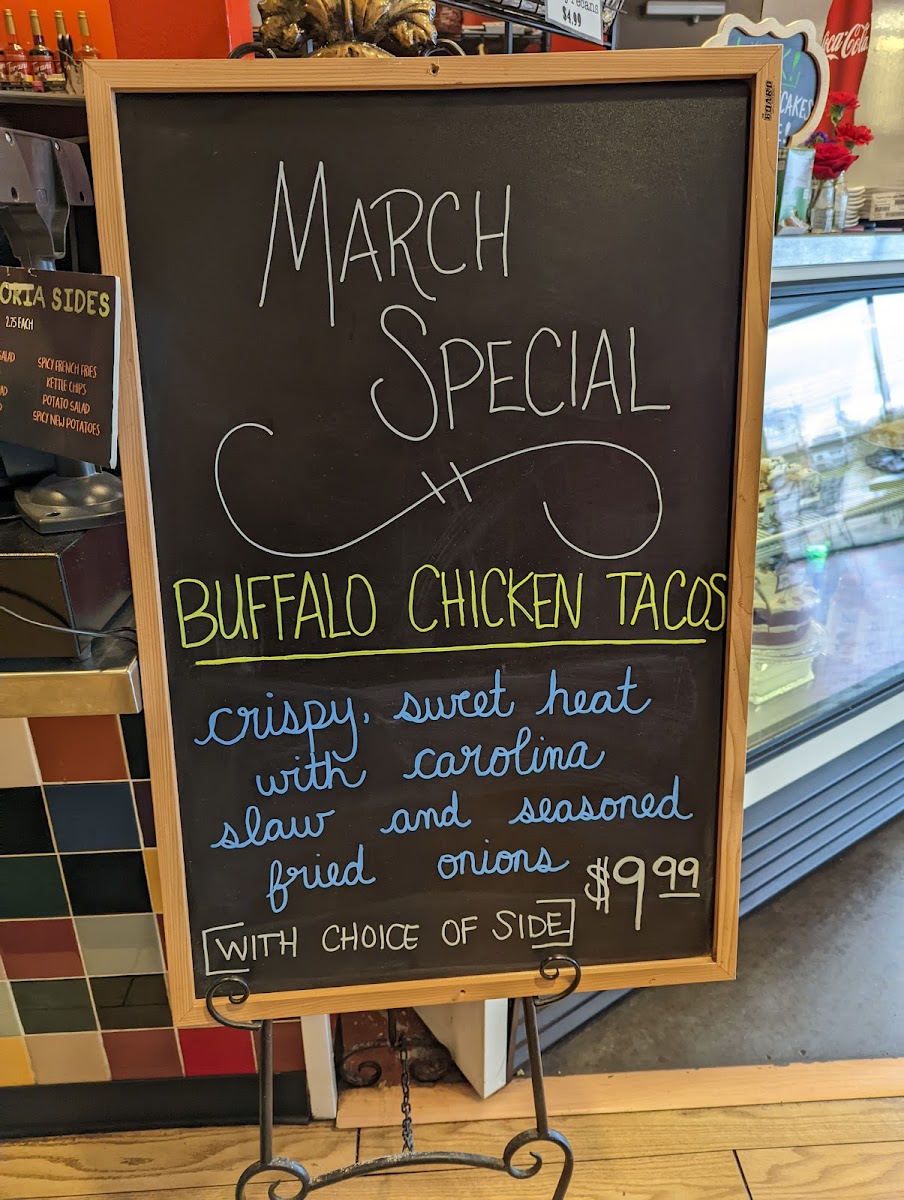 pecans
$4.99
Coca-Cola
CAKES
BOARD
MARCH
SPECIAL
BUFFALO CHICKEN TACOS
crispy, sweet heat
with carolina
slaw and seasoned
fried onions
$9.99
WITH CHOICE OF SIDE
ORIA SIDES
2.75 EACH
SALAD
SPICY FRENCH FRIES
KETTLE CHIPS
POTATO SALAD
SPICY NEW POTATOES